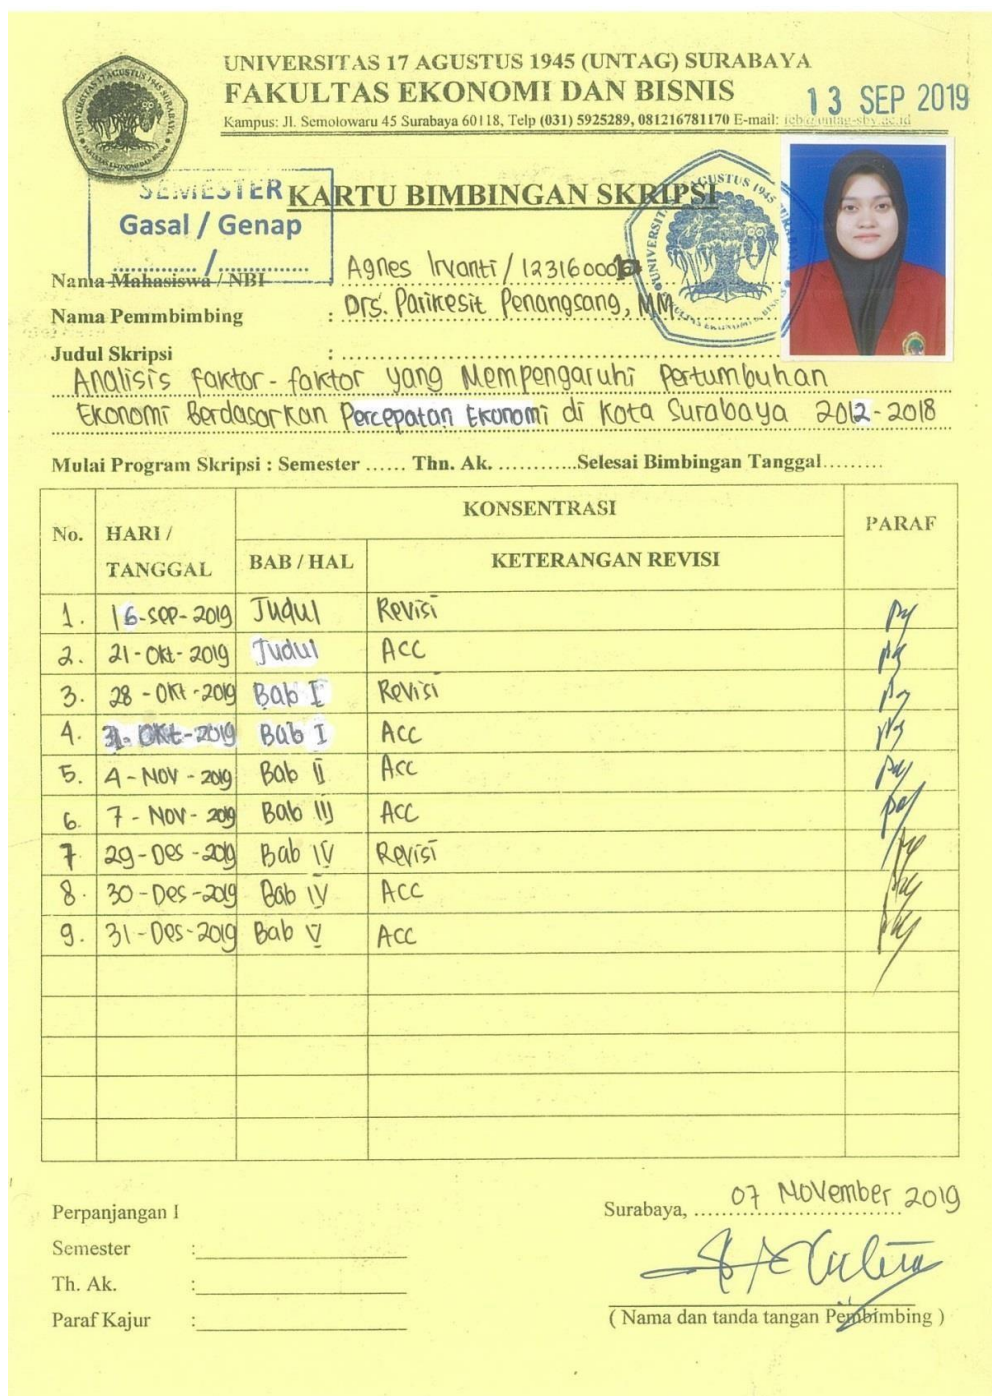 UNIVERSITAS 17 AGUSTUS 1945 (UNTAG) SURABAYA
FAKULTAS EKONOMI DAN BISNIS
13 SEP 2019
Kampus: Jl. Semolowaru 45 Surabaya 60118, Telp (031) 5925289, 081216781170 E-mail: feb@untag-sby.ac.id
SEMESTER
Gasal / Genap
............. / ..............
KARTU BIMBINGAN SKRIPSI
Nama Mahasiswa / NBI : Agnes Irvanti / 123160001
Nama Pemmbimbing : Drs. Parikesit Penangsang, MM
Judul Skripsi :
Analisis Faktor-faktor yang Mempengaruhi Pertumbuhan
Ekonomi Berdasarkan Percepatan Ekonomi di Kota Surabaya 2012-2018
Mulai Program Skripsi : Semester ...... Thn. Ak. ............Selesai Bimbingan Tanggal.........
No. HARI / TANGGAL KONSENTRASI PARAF
BAB / HAL KETERANGAN REVISI
1. 16-Sep-2019 Judul Revisi
2. 21-Okt-2019 Judul Acc
3. 28-Okt-2019 Bab I Revisi
4. 31-Okt-2019 Bab I Acc
5. 4-Nov-2019 Bab II Acc
6. 7-Nov-2019 Bab III Acc
7 29-Des-2019 Bab IV Revisi
8. 30-Des-2019 Bab IV Acc
9. 31-Des-2019 Bab V Acc
Perpanjangan I
Semester :
Th. Ak. :
Paraf Kajur :
Surabaya, 07 November 2019
( Nama dan tanda tangan Pembimbing )